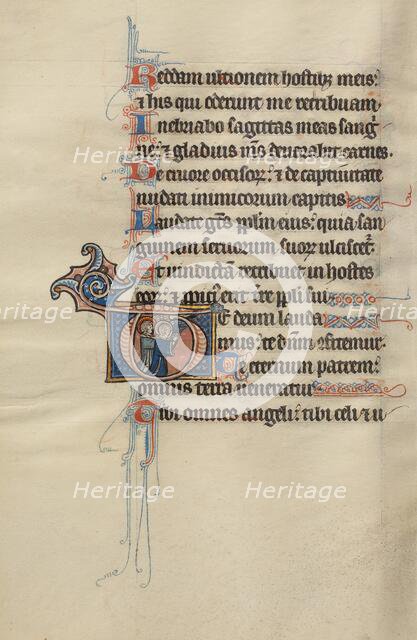 Reddam ultionem hostibz meis:
& his qui oderunt me retribuam.
Inebriabo sagittas meas sang
ne: & gladius ms devorabit carnes.
De cruore occisor: & de captivitate
nudati inimicorum capitis
Laudate gtes pplm eius: quia san
guinem servorum suor ulciscet
Et vindictam retribuet in hostes
eor: & ppici erit tre ppli sui.
Te deum lauda
mus: te dnm 9fitemur
Te eternum patrem:
omnis terra veneratur
Tibi omnes angeli: tibi celi & u
Heritage Heritage
Heritage Heritage Heritage
Heritage Heritage